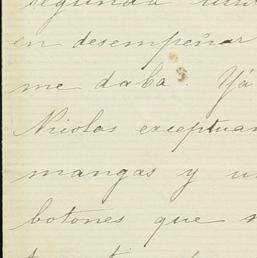 segunda
en desempeñar
me daba. Yá
Nicolas exceptuan
mangas y u
botones que